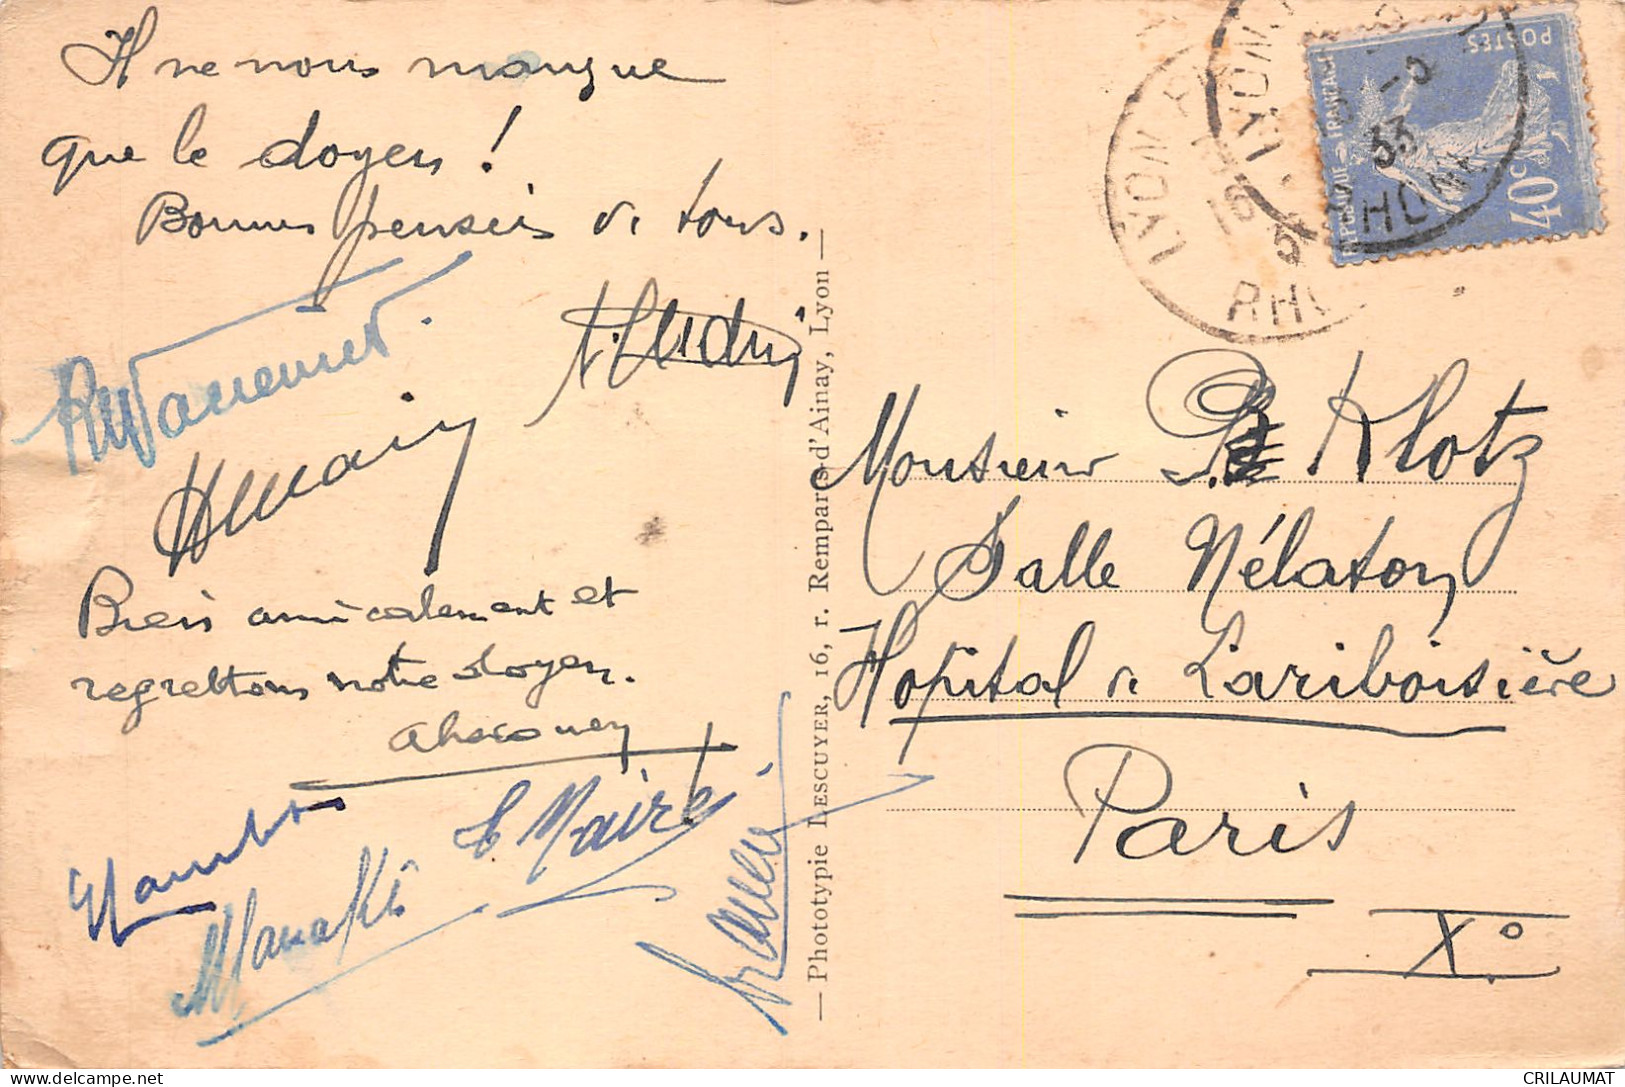 Il ne nous manque
que le doyen !
Bonnes pensées de tous.
Bien amicalement et
regrettons notre doyen.
Le Maire
— Phototypie LESCUYER, 16, r. Remparts d'Ainay, Lyon —
LYON
RHONE
LYON
16
5
33
RHONE
POSTES
REPUBLIQUE FRANÇAISE
40c
Monsieur Klotz
Salle Nélaton
Hopital de Lariboisière
Paris
X°
CRILAUMAT